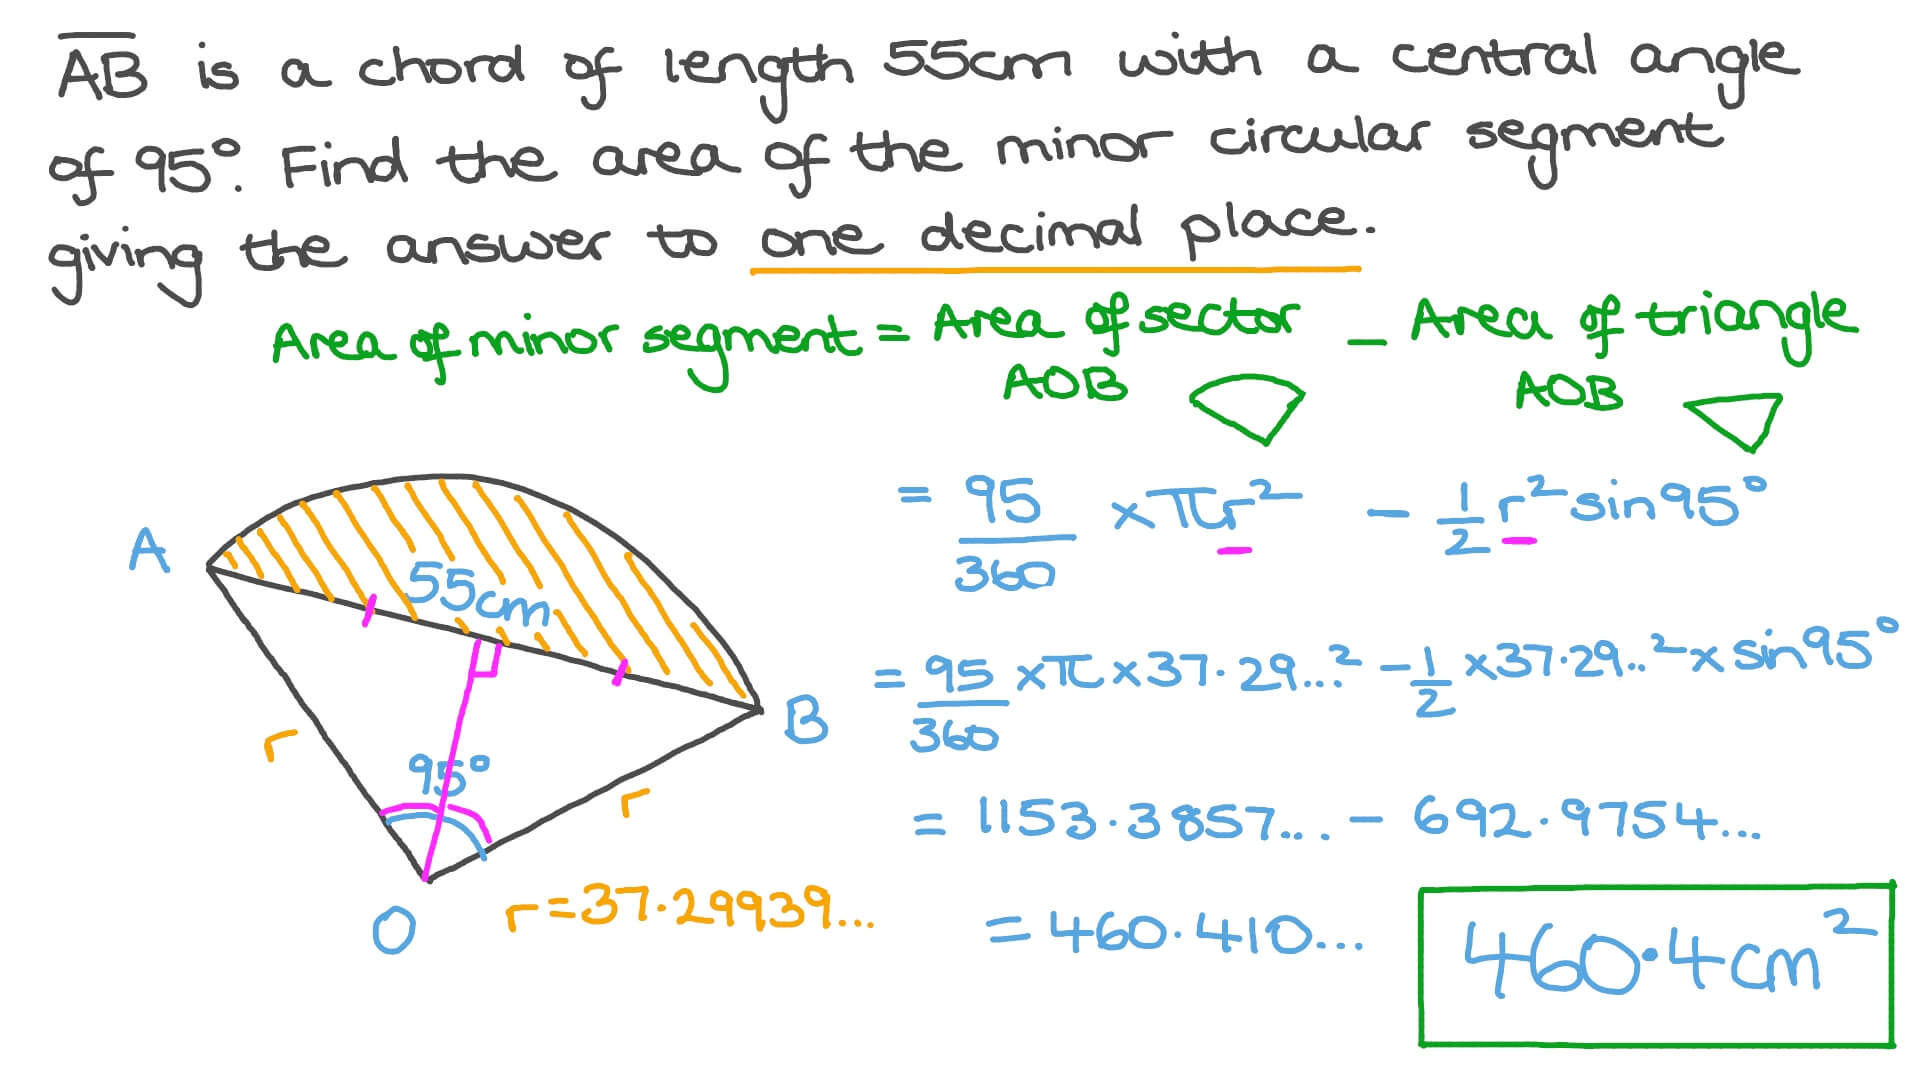 AB is a chord of length 55cm with a central angle
of 95°. Find the area of the minor circular segment
giving the answer to one decimal place.
Area of minor segment = Area of sector AOB − Area of triangle AOB
= 95/360 × πr² − 1/2 r² sin95°
= 95/360 × π × 37.29...² − 1/2 × 37.29..² × sin95°
= 1153.3857... − 692.9754...
= 460.410...
460.4cm²
A
55cm
B
r
95°
r
O
r = 37.29939...